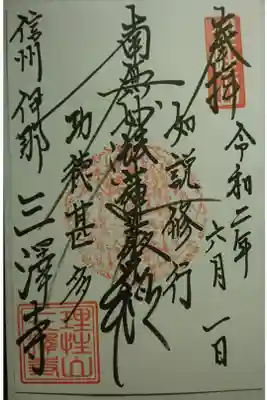 奉拝
令和二年
六月一日
如説修行
南無妙法蓮華経
功徳甚多
信州伊那
三澤寺
理性山